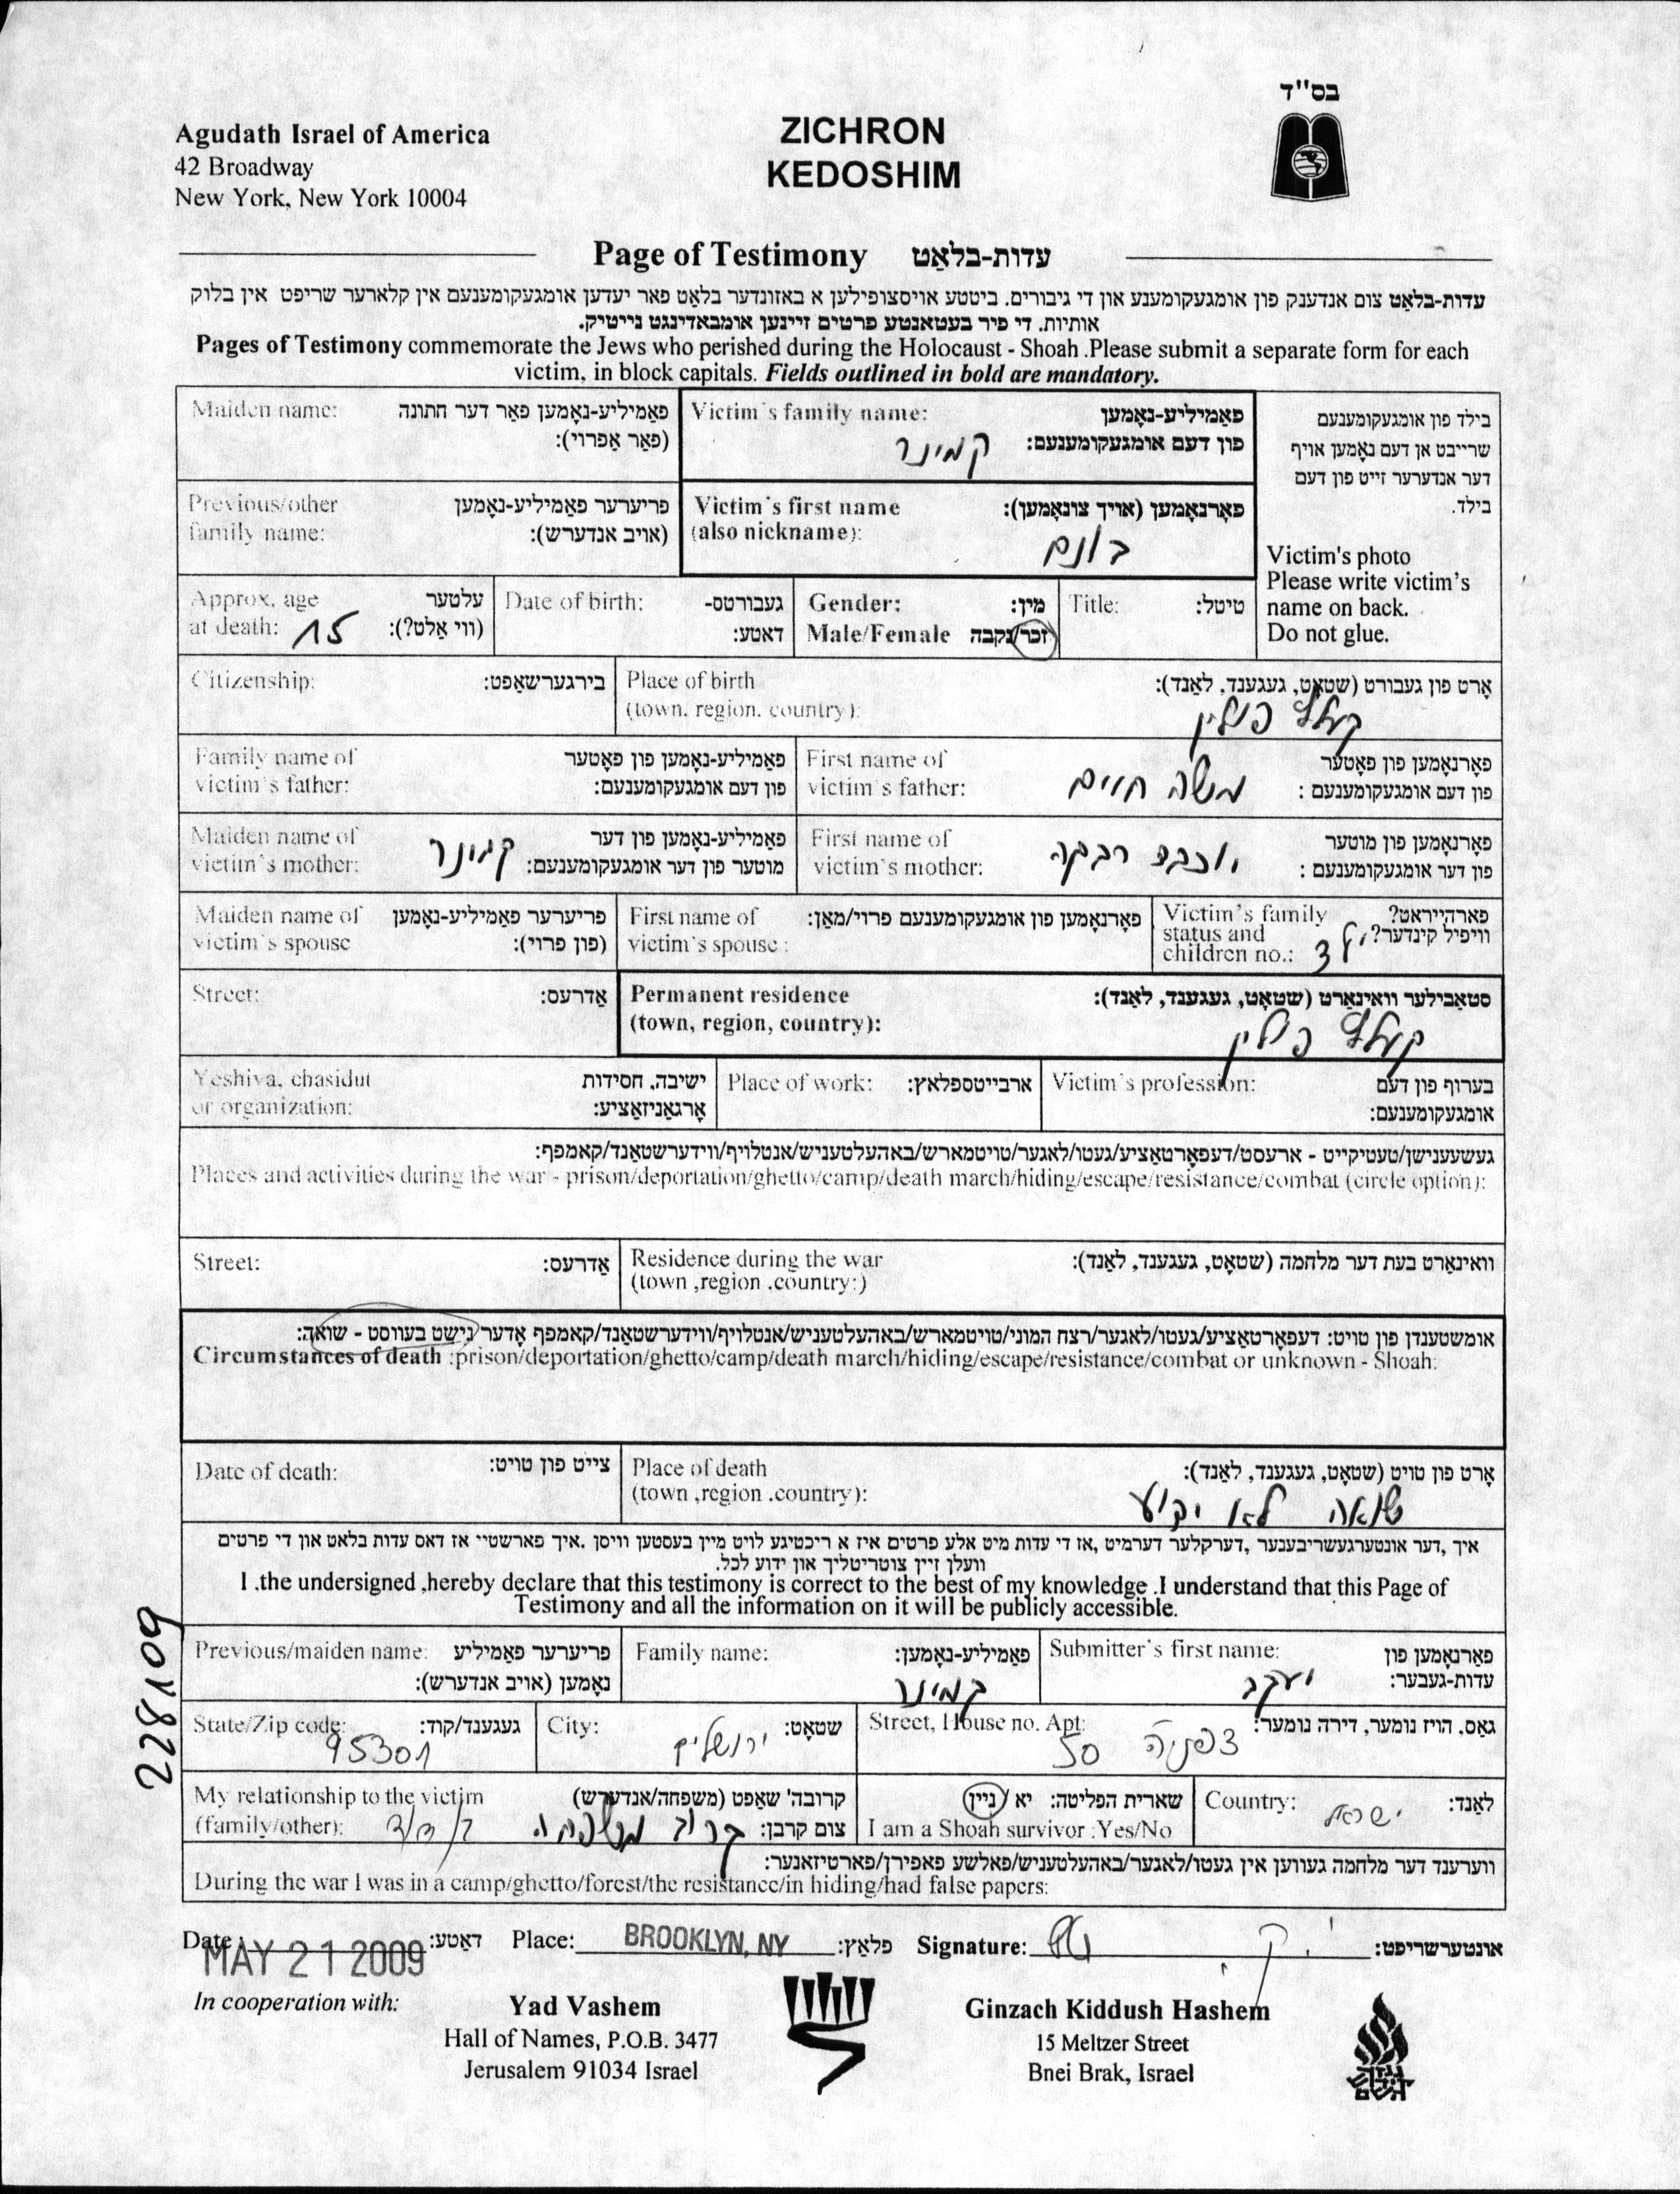 בס"ד
Agudath Israel of America
42 Broadway
New York, New York 10004
ZICHRON
KEDOSHIM
Page of Testimony עדות-בלאַט
עדות-בלאַט צום אנדענק פון אומגעקומענע און די גיבורים. ביטטע אויסצופילען א באזונדער בלאַט פאר יעדען אומגעקומענעם אין קלארער שריפט אין בלוק
אותיות. די פיר בעטאנטע פרטים זיינען אומבאדינגט נייטיק.
Pages of Testimony commemorate the Jews who perished during the Holocaust - Shoah .Please submit a separate form for each
victim, in block capitals. Fields outlined in bold are mandatory.
Maiden name: פאַמיליע-נאָמען פאַר דער חתונה
(פאַר אַפרוי):
Victim's family name: פאַמיליע-נאָמען
פון דעם אומגעקומענעם: קמינר
בילד פון אומגעקומענעם
שרייבט אן דעם נאָמען אויף
דער אנדערער זייט פון דעם
בילד.
Victim's photo
Please write victim's
name on back.
Do not glue.
Previous/other פריערער פאַמיליע-נאָמען
family name: (אויב אנדערש):
Victim's first name פאָרנאָמען (אויך צונאָמען):
(also nickname):
בונם
Approx. age עלטער
at death: 15 (ווי אַלט?):
Date of birth: געבורטס-
דאטע:
Gender: מין:
Male/Female זכר/נקבה
Title: טיטל:
Citizenship: בירגערשאַפט:
Place of birth אָרט פון געבורט (שטאָט, געגענד, לאַנד):
(town, region, country):
קעלץ פולין
Family name of פאַמיליע-נאָמען פון פאָטער
victim's father: פון דעם אומגעקומענעם:
First name of פאָרנאָמען פון פאָטער
victim's father: פון דעם אומגעקומענעם : משה חיים
Maiden name of פאַמיליע-נאָמען פון דער
victim's mother: מוטער פון דער אומגעקומענעם: קמינר
First name of פאָרנאָמען פון מוטער
victim's mother: פון דער אומגעקומענעם : יוכבד רבקה
Maiden name of פריערער פאַמיליע-נאָמען
victim's spouse (פון פרוי):
First name of פאָרנאָמען פון אומגעקומענעם פרוי/מאַן:
victim's spouse :
Victim's family פארהייראט?
status and וויפיל קינדער?
children no.: ילד
Street: אַדרעס:
Permanent residence סטאַבילער וואינאָרט (שטאָט, געגענד, לאַנד):
(town, region, country):
קעלץ פולין
Yeshiva, chasidut ישיבה, חסידות
or organization: אָרגאַניזאַציע:
Place of work: ארבייטספלאץ:
Victim's profession: בערוף פון דעם
אומגעקומענעם:
געשעענישן/טעטיקייט - ארעסט/דעפאָרטאַציע/געטו/לאגער/טויטמארש/באהעלטעניש/אנטלויף/ווידערשטאַנד/קאמפף:
Places and activities during the war - prison/deportation/ghetto/camp/death march/hiding/escape/resistance/combat (circle option):
Street: אַדרעס:
Residence during the war וואינאָרט בעת דער מלחמה (שטאָט, געגענד, לאַנד):
(town ,region .country:)
אומשטענדן פון טויט: דעפאָרטאַציע/געטו/לאגער/רצח המוני/טויטמארש/באהעלטעניש/אנטלויף/ווידערשטאַנד/קאמפף אָדער נישט בעווסט - שואה:
Circumstances of death :prison/deportation/ghetto/camp/death march/hiding/escape/resistance/combat or unknown - Shoah:
Date of death: צייט פון טויט:
Place of death אָרט פון טויט (שטאָט, געגענד, לאַנד):
(town ,region .country):
שואה לא ידוע
איך ,דער אונטערגעשריבענער ,דערקלער דערמיט ,אז די עדות מיט אלע פרטים איז א ריכטיגע לויט מיין בעסטען וויסן .איך פארשטיי אז דאס עדות בלאט און די פרטים
וועלן זיין צוטריטליך און ידוע לכל.
I .the undersigned ,hereby declare that this testimony is correct to the best of my knowledge .I understand that this Page of
Testimony and all the information on it will be publicly accessible.
Previous/maiden name: פריערער פאַמיליע
נאָמען (אויב אנדערש):
Family name: פאַמיליע-נאָמען:
קמינר
Submitter's first name: פאָרנאָמען פון
עדות-געבער:
יעקב
State/Zip code: געגענד/קוד:
95301
City: שטאָט: ירושלים
Street, House no. Apt: גאַס, הויז נומער, דירה נומער:
צפניה 50
My relationship to the victim קרובה' שאַפט (משפחה/אנדערש)
(family/other): צום קרבן: קרוב משפחה בן דוד
שארית הפליטה: יא / ניין
I am a Shoah survivor :Yes/No
Country: לאַנד:
ישראל
ווערענד דער מלחמה געווען אין געטו/לאגער/באהעלטעניש/פאלשע פאפירן/פארטיזאנער:
During the war I was in a camp/ghetto/forest/the resistance/in hiding/had false papers:
Date: MAY 21 2009 דאטע: Place: BROOKLYN, NY פלאַץ: Signature: אונטערשריפט:
In cooperation with:
Yad Vashem
Hall of Names, P.O.B. 3477
Jerusalem 91034 Israel
Ginzach Kiddush Hashem
15 Meltzer Street
Bnei Brak, Israel
גנזך
קידוש
השם
228109